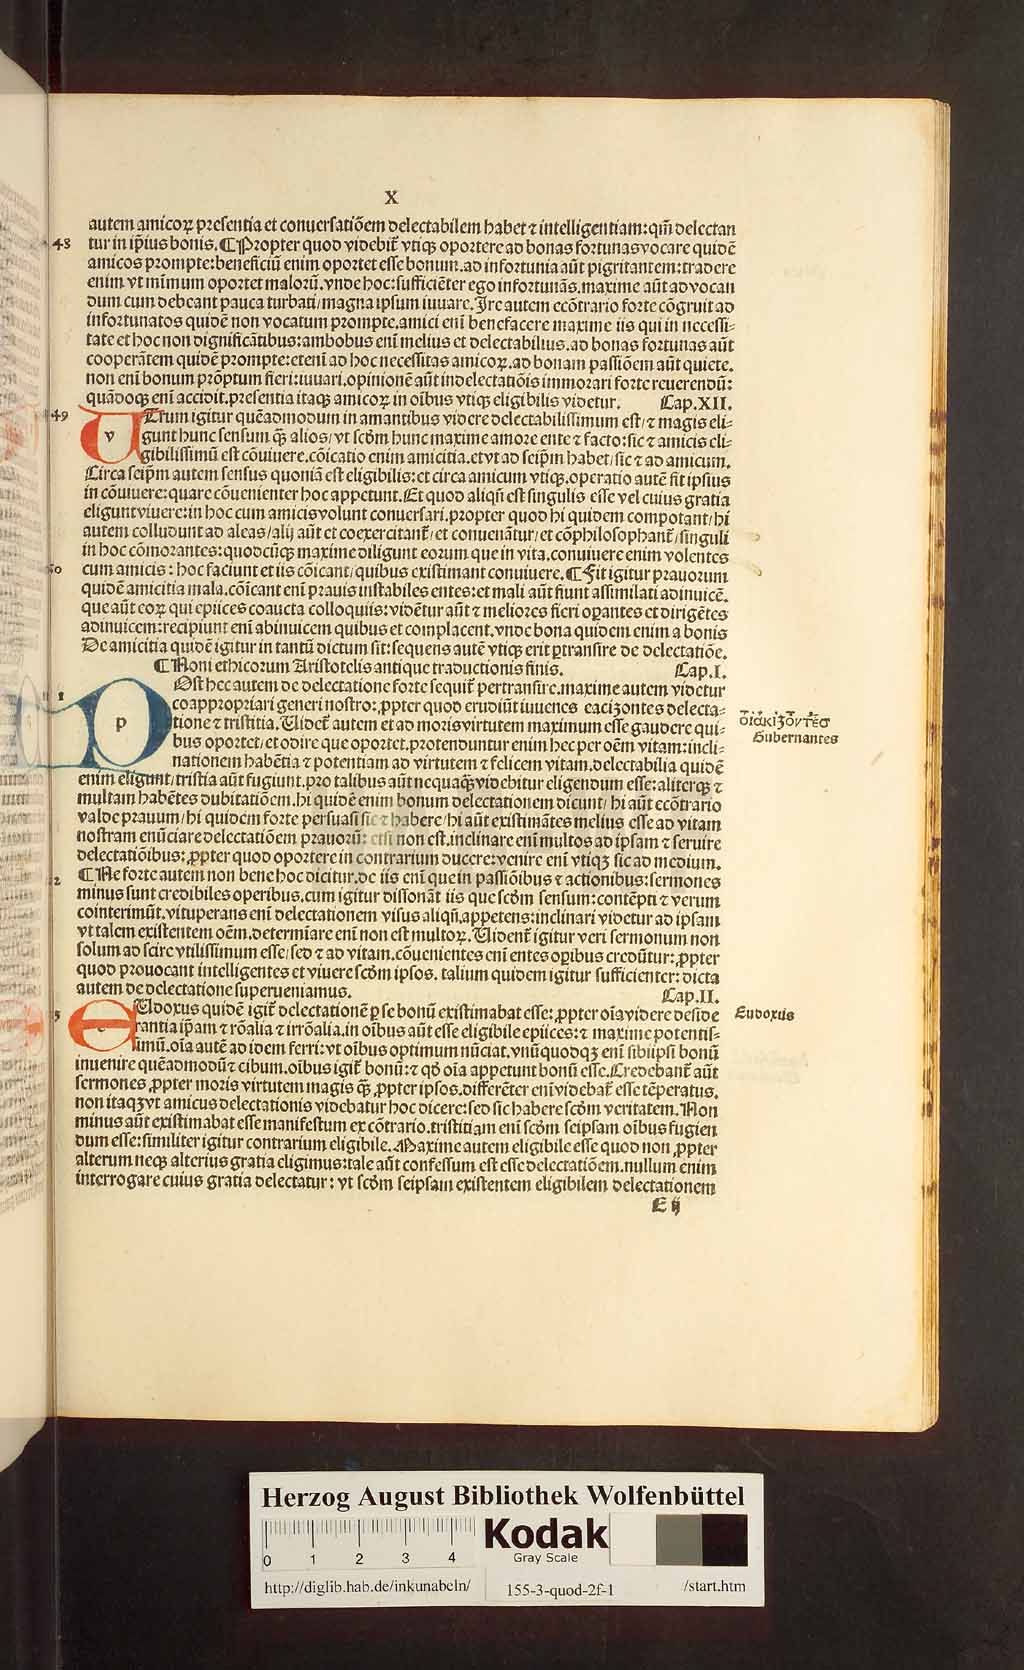 X
autem amicoꝝ presentia et conuersatiõem delectabilem habet ⁊ intelligentiam: qm̃ delectan
48 tur in ip̃ius bonis. ¶ Propter quod videbit̃ vtiqꝫ oportere ad bonas fortunas vocare quidẽ
amicos prompte: beneficiũ enim oportet esse bonum. ad infortunia aũt pigritantem: tradere
enim vt minimum oportet maloꝝ. vnde hoc: sufficiẽter ego infortunãs. maxime aũt aduocan
dum cum debeant pauca turbati/ magna ipsum iuuare. Ire autem ecõtrario forte cõgruit ad
infortunatos quidẽ non vocatum prompte. amici eni᷑ benefacere maxime iis qui in necessi⸗
tate et hoc non dignificãtibus: ambobus eni᷑ melius et delectabilius. ad bonas fortunas aũt
cooperãtem quidẽ prompte: eteni᷑ ad hoc necessitas amicoꝝ. ad bonam passiõem aũt quiete.
non eni᷑ bonum prõptum fieri: iuuari. opinionẽ aũt indelectatiõis immorari forte reuerendũ:
quãdoqꝫ eni᷑ accidit. presentia itaqꝫ amicoꝝ in oĩbus vtiqꝫ eligibilis videtur. Cap. XII.
49 v Trum igitur quẽadmodum in amantibus videre delectabilissimum est/ ⁊ magis eli⸗
gunt hunc sensum q̃ꝫ alios/ vt scḋm hunc maxime amore ente ⁊ facto: sic ⁊ amicis eli⸗
gibilissimũ est cõuiuere. cõicatio enim amicitia. et vt ad seip̃m habet/ sic ⁊ ad amicum.
Circa seip̃m autem sensus quoniã est eligibilis: et circa amicum vtiqꝫ. operatio autẽ fit ipsius
in cõuiuere: quare cõuenienter hoc appetunt. Et quod aliqñ est singulis esse vel cuius gratia
eligunt viuere: in hoc cum amicis volunt conuersari. propter quod hi quidem compotant/ hi
autem colludunt ad aleas/ alij aũt et coexercitant̃/ et conuenãtur/ et cõphilosophant̃/ singuli
in hoc cõmorantes: quodcũqꝫ maxime diligunt eorum que in vita. conuiuere enim volentes
cum amicis: hoc faciunt et iis cõicant/ quibus existimant conuiuere. ¶ Fit igitur prauorum
quidẽ amicitia mala. cõicant eni᷑ prauis instabiles entes: et mali aũt fiunt assimilati adinuicẽ.
que aũt eoꝝ qui epiices coaucta colloquiis: vidẽtur aũt ⁊ meliores fieri oꝑantes et dirigẽtes
adinuicem: recipiunt eni᷑ abinuicem quibus et complacent. vnde bona quidem enim a bonis
De amicitia quidẽ igitur in tantũ dictum sit: sequens autẽ vtiqꝫ erit ꝑtransire de delectatiõe.
¶ Noni ethicorum Aristotelis antique traductionis finis. Cap. I.
1 p Ost hec autem de delectatione forte sequit̃ pertransire. maxime autem videtur
coappropriari generi nostro: ꝓpter quod erudiũt iuuenes eacizontes delecta⸗
tione ⁊ tristitia. Videt̃ autem et ad moris virtutem maximum esse gaudere qui⸗
bus oportet/ et odire que oportet. protenduntur enim hec per oẽm vitam: incli⸗
nationem habẽtia ⁊ potentiam ad virtutem ⁊ felicem vitam. delectabilia quidẽ
οἰακίζοντες
Gubernantes
enim eligunt/ tristia aũt fugiunt. pro talibus aũt nequaqꝫ videbitur eligendum esse: aliterqꝫ ⁊
multam habẽtes dubitatiõem. hi quidẽ enim bonum delectationem dicunt/ hi aũt ecõtrario
valde prauum/ hi quidem forte persuasi sic ⁊ habere/ hi aũt existimãtes melius esse ad vitam
nostram enũciare delectatiõem prauorũ: etsi non est. inclinare eni᷑ multos ad ipsam ⁊ seruire
delectatiõibus: ꝓpter quod oportere in contrarium ducere: venire eni᷑ vtiqꝫ sic ad medium.
2 ¶ Ne forte autem non bene hoc dicitur. de iis eni᷑ que in passiõibus ⁊ actionibus: sermones
minus sunt credibiles operibus. cum igitur dissonãt iis que scḋm sensum: contẽpti ⁊ verum
cointerimũt. vituperans eni᷑ delectationem visus aliqñ. appetens: inclinari videtur ad ipsam
vt talem existentem oẽm. determiare eni᷑ non est multoꝝ. Vident̃ igitur veri sermonum non
solum ad scire vtilissimum esse/ sed ⁊ ad vitam. cõuenientes eni᷑ entes oꝑibus credũtur: ꝓpter
quod prouocant intelligentes et viuere scḋm ipsos. talium quidem igitur sufficienter: dicta
autem de delectatione superueniamus. Cap. II.
3 e Udoxus quidẽ igit̃ delectationẽ ꝑ se bonũ existimabat esse: ꝓpter oĩa videre deside Eudoxus
rantia ip̃am ⁊ rõalia ⁊ irrõalia. in oĩbus aũt esse eligibile epiices: ⁊ maxime potentis⸗
simũ. oĩa autẽ ad idem ferri: vt oĩbus optimum nũciat. vnũquodqꝫ eni᷑ sibiipsi bonũ
inuenire quẽadmodũ ⁊ cibum. oĩbus igit̃ bonũ: ⁊ qḋ oĩa appetunt bonũ esse. Credebant̃ aũt
sermones ꝓpter moris virtutem magis q̃ꝫ ꝓpter ipsos. differẽter eni᷑ videbat̃ esse tẽperatus.
non itaqꝫ vt amicus delectationis videbatur hoc dicere: sed sic habere scḋm veritatem. Non
minus aũt existimabat esse manifestum ex cõtrario. tristitiam eni᷑ scḋm seipsam oĩbus fugien
dum esse: similiter igitur contrarium eligibile. Maxime autem eligibile esse quod non ꝓpter
alterum neqꝫ alterius gratia eligimus: tale aũt confessum est esse delectatiõem. nullum enim
interrogare cuius gratia delectatur: vt scḋm seipsam existentem eligibilem delectationem
E ij
Herzog August Bibliothek Wolfenbüttel
0 1 2 3 4
Kodak
Gray Scale
http://diglib.hab.de/inkunabeln/ 155-3-quod-2f-1 /start.htm